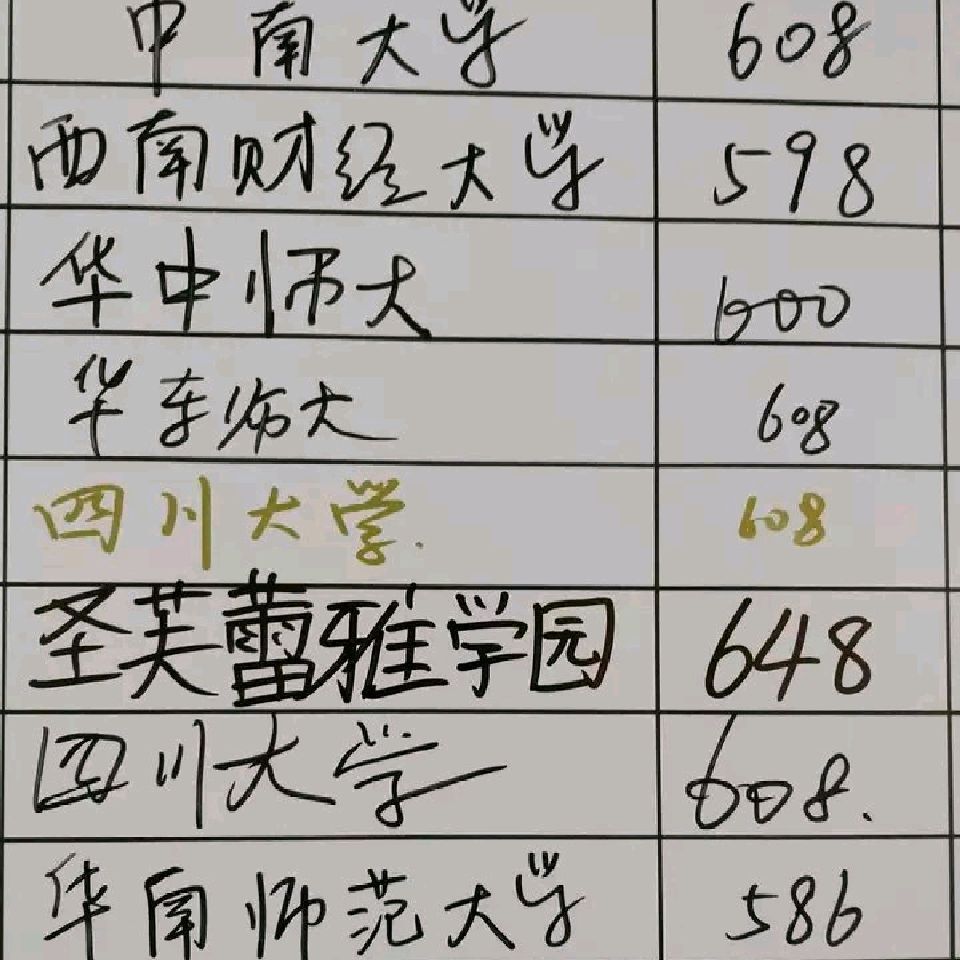 中南大学 608
西南财经大学 598
华中师大 600
华东师大 608
四川大学. 608
圣芙蕾雅学园 648
四川大学 608.
华南师范大学 586